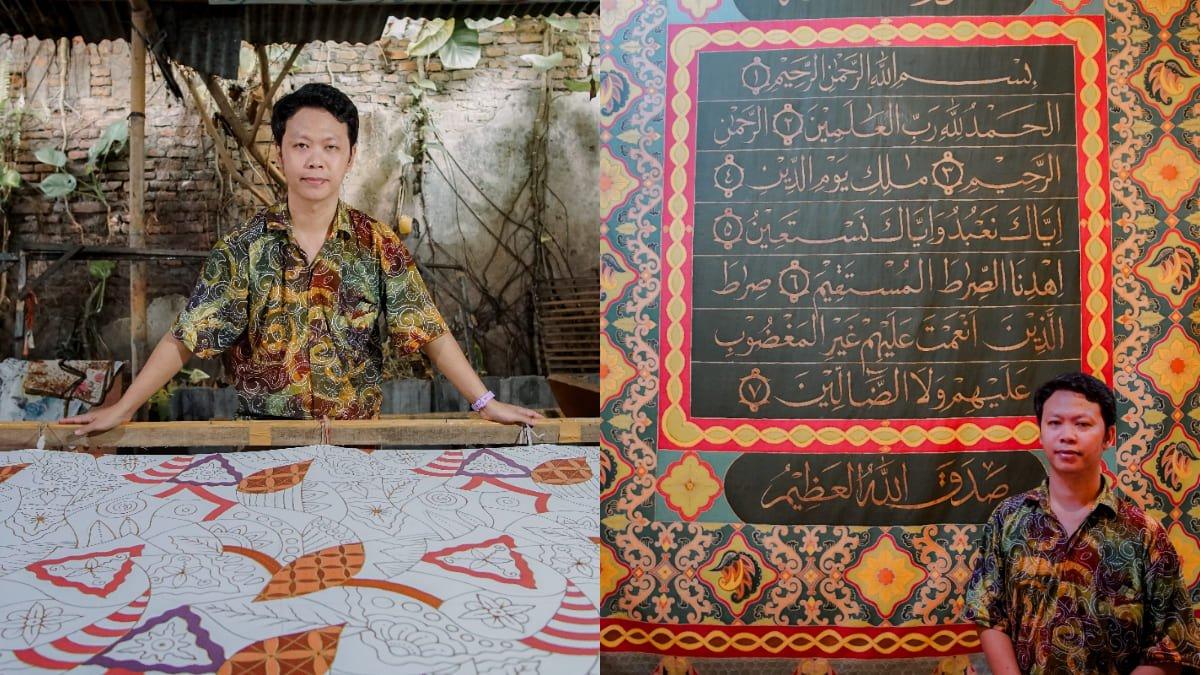 بِسْمِ اللّٰهِ الرَّحْمٰنِ الرَّحِيْمِ ۝١
الْحَمْدُ لِلّٰهِ رَبِّ الْعٰلَمِيْنَ ۝٢ الرَّحْمٰنِ
الرَّحِيْمِ ۝٣ مٰلِكِ يَوْمِ الدِّيْنِ ۝٤
اِيَّاكَ نَعْبُدُ وَاِيَّاكَ نَسْتَعِيْنُ ۝٥
اِهْدِنَا الصِّرَاطَ الْمُسْتَقِيْمَ ۝٦ صِرَاطَ
الَّذِيْنَ اَنْعَمْتَ عَلَيْهِمْ غَيْرِ الْمَغْضُوْبِ
عَلَيْهِمْ وَلَا الضَّالِّيْنَ ۝٧
صَدَقَ اللّٰهُ الْعَظِيْمُ